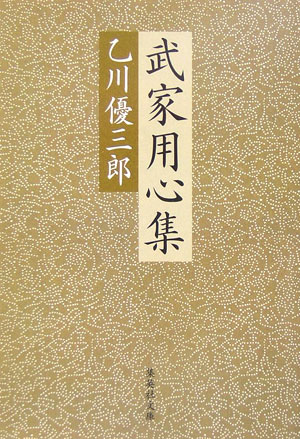 武家用心集
乙川優三郎
集英社文庫